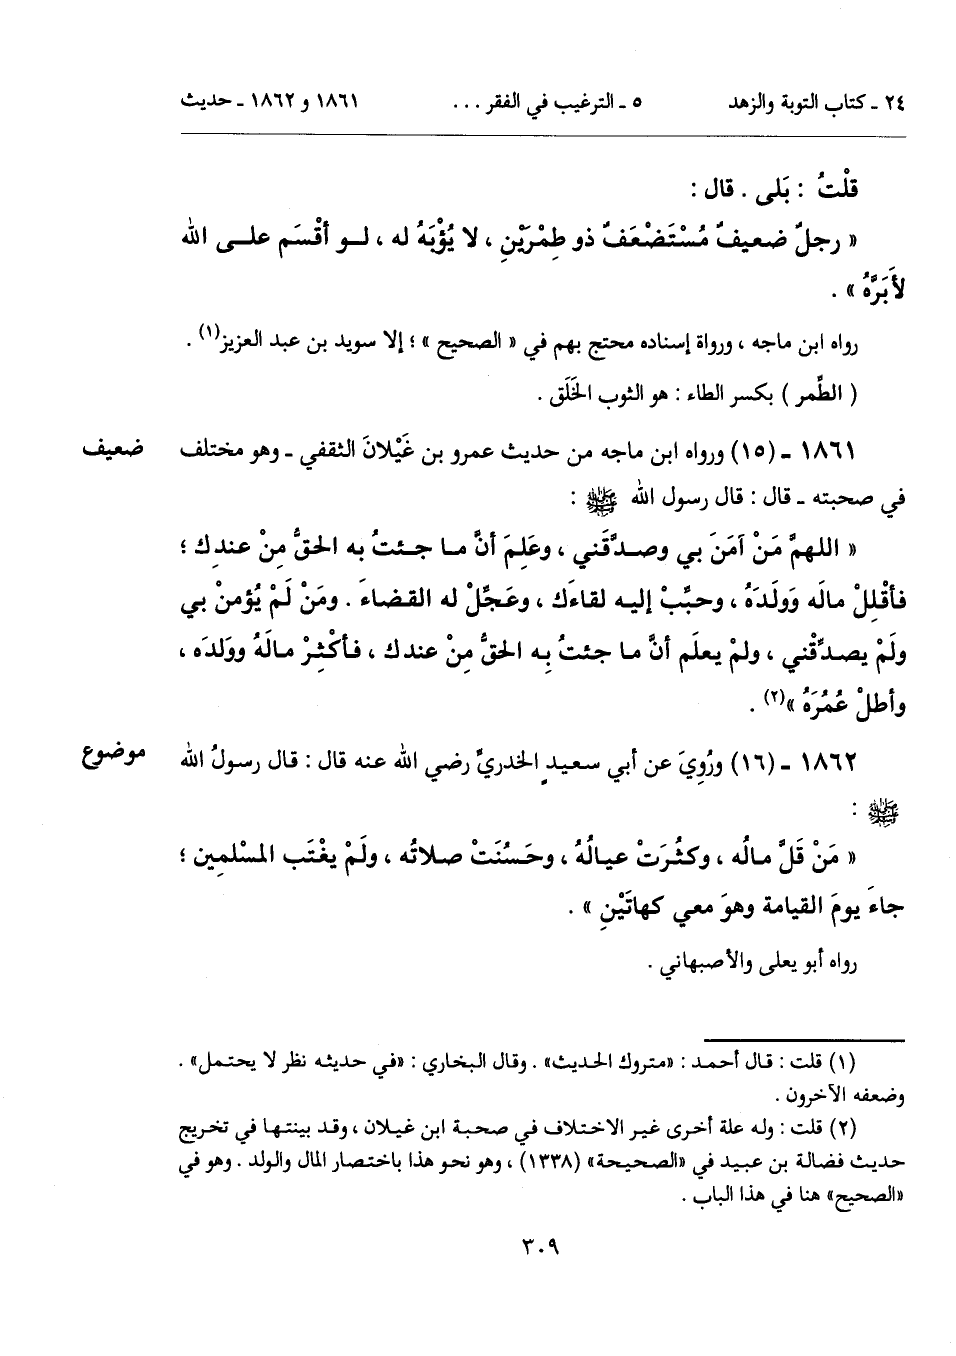 ٢٤ ـ كتاب التوبة والزهد ٥ ـ الترغيب في الفقر ... ١٨٦١ و ١٨٦٢ ـ حديث
قلْتُ : بَلى . قال :
« رجلٌ ضعيفٌ مُسْتَضْعَفٌ ذو طِمْرَيْنِ ، لا يُؤْبَهُ له ، لـو أقْسَم علـى الله
لأَبَرَّهُ » .
رواه ابن ماجه ، ورواة إسناده محتج بهم في « الصحيح » ؛ إلا سويد بن عبد العزيز(١) .
( الطِّمر ) بكسر الطاء : هو الثوب الخَلَق .
١٨٦١ ـ (١٥) ورواه ابن ماجه من حديث عمرو بن غَيْلانَ الثقفي ـ وهو مختلف ضعيف
في صحبته ـ قال : قال رسول الله ﷺ :
« اللهمَّ مَنْ آمَنَ بي وصـدَّقَني ، وعَلِمَ أنَّ مـا جـئتُ به الحقُّ مِنْ عندِك ؛
فأقْلِلْ مالَه وَوَلَدَهُ ، وحبِّبْ إليـه لقاءَك ، وعَجِّلْ له القضاءَ . ومَنْ لَمْ يُؤمنْ بي
ولَمْ يصدِّقْني ، ولمْ يعلَم أنَّ مـا جئتُ بِه الحقُّ مِنْ عندك ، فـأكْثِرْ مـالَهُ وولَدَه ،
وأطلْ عُمُرَهُ »(٢) .
١٨٦٢ ـ (١٦) ورُوِيَ عن أبي سعيدٍ الخدريِّ رضي الله عنه قال : قال رسولُ الله موضوع
ﷺ :
« مَنْ قَلَّ مـالُه ، وكثُرَتْ عيـالُهُ ، وحَسُنَتْ صلاتُه ، ولَمْ يغْتَب المسْلمِين ؛
جاءَ يومَ القيامة وهوَ معي كهاتَيْنِ » .
رواه أبو يعلى والأصبهاني .
(١) قلت : قال أحمد : «متروك الحديث» . وقال البخاري : «في حديثه نظر لا يحتمل» .
وضعفه الآخرون .
(٢) قلت : وله علة أخرى غير الاختلاف في صحبة ابن غيلان ، وقد بينتها في تخريج
حديث فضالة بن عبيد في «الصحيحة» (١٣٣٨) ، وهو نحو هذا باختصار المال والولد . وهو في
«الصحيح» هنا في هذا الباب .
٣٠٩